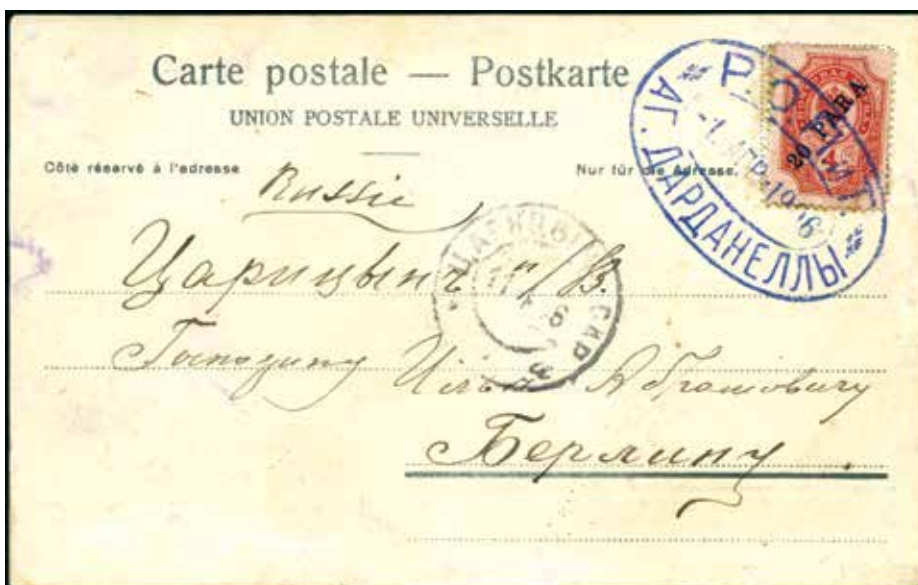 Carte postale — Postkarte
UNION POSTALE UNIVERSELLE
Côté réservé à l'adresse
Nur für die Adresse.
Р.О.П.
АГ. ДАРДАНЕЛЛЫ
20 PARA
Russie
Царицынъ н/В.
Господину Илье Абрамовичу
Берлину.